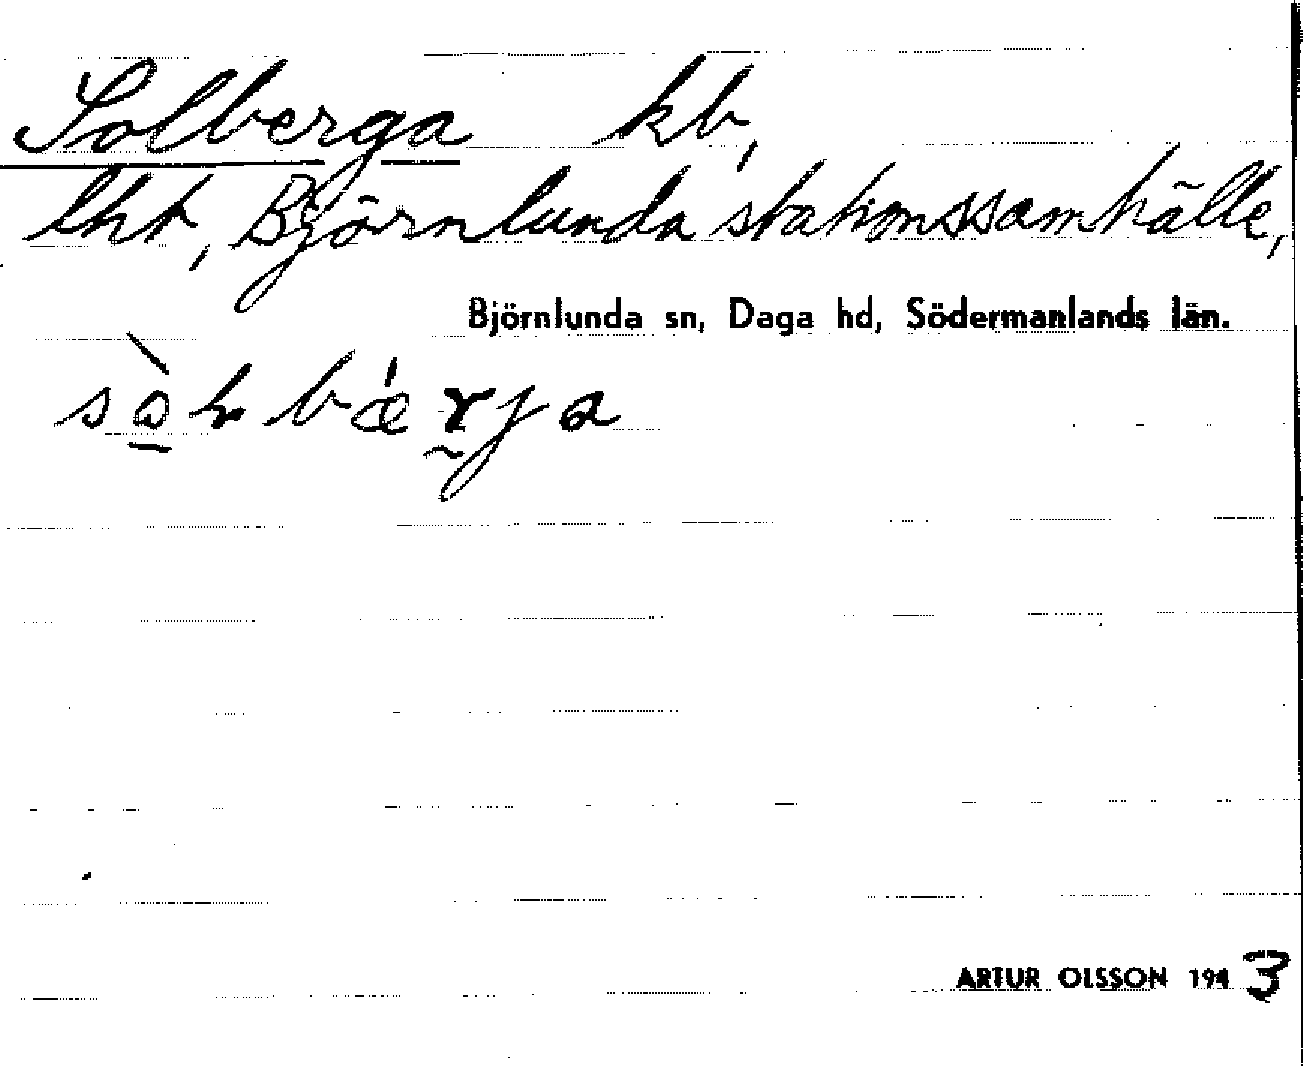 Solberga kb,
lht, Björnlunda stationssamhälle,
Björnlunda sn, Daga hd, Södermanlands län.
ARTUR OLSSON 1943